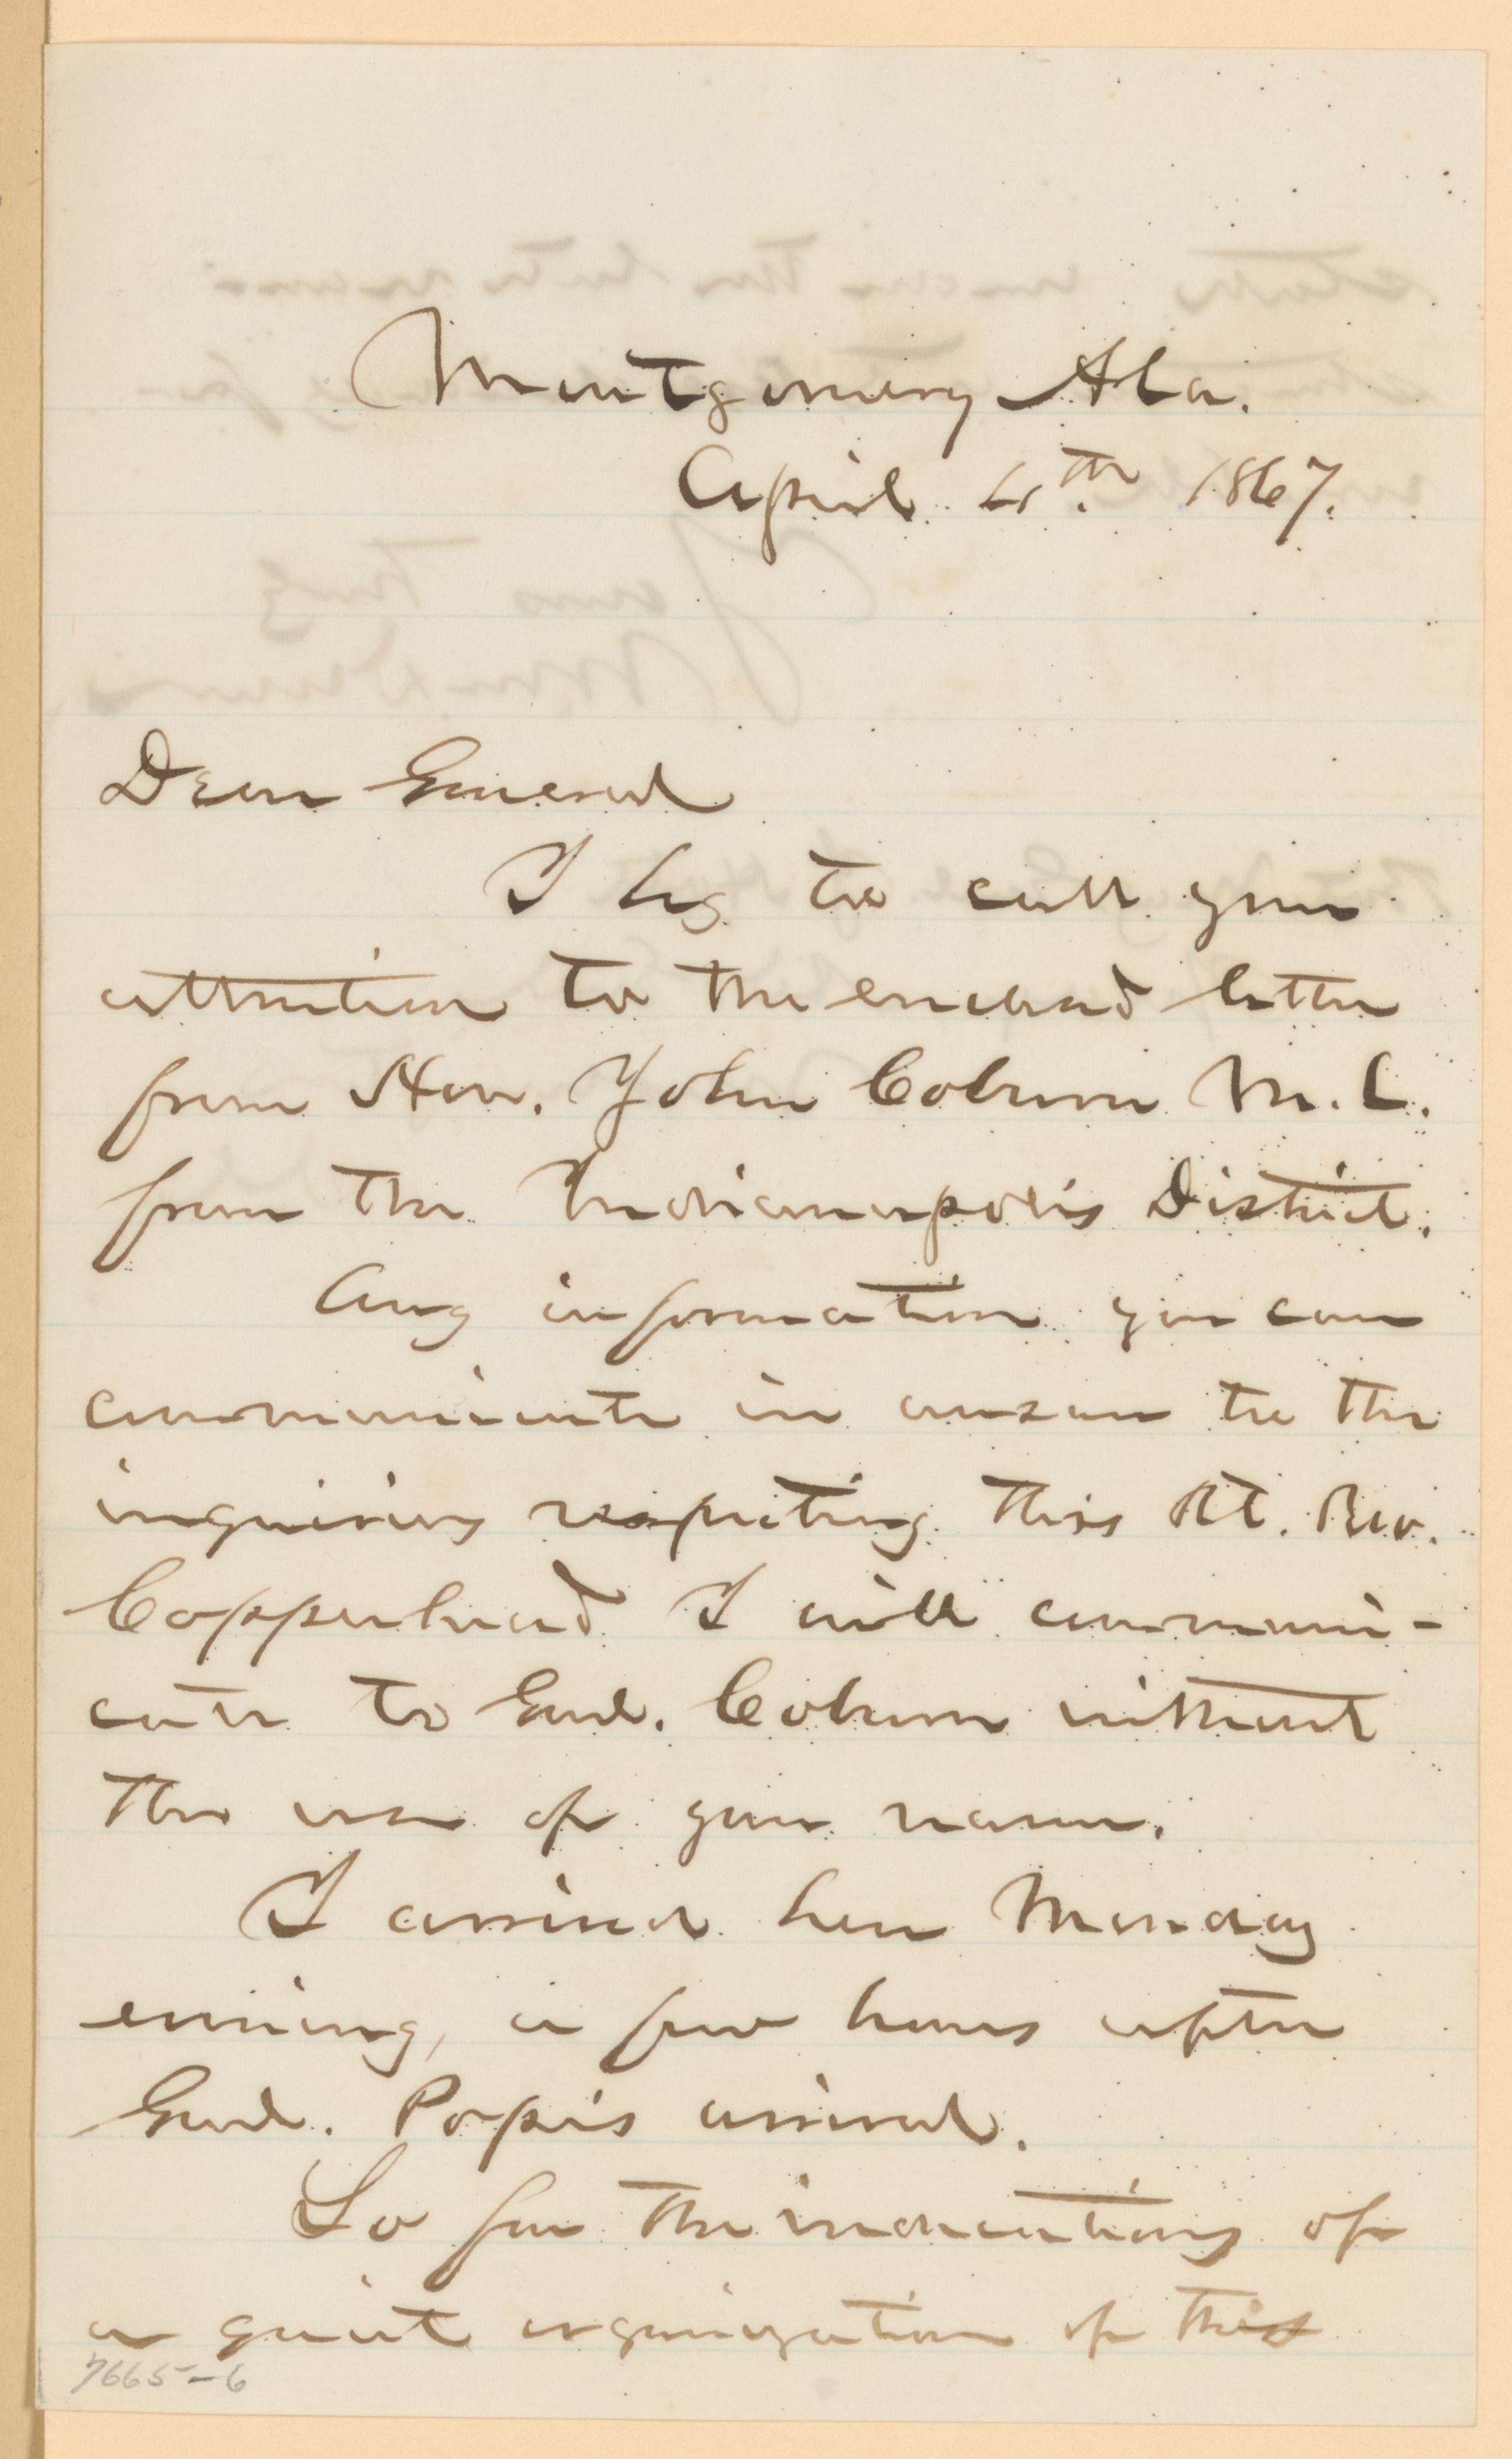 Montgomery Ala.
April 4th 1867.
Dear General
I beg to call your
attention to the enclosed letter
from Hon. John Coburn M.C.
from the Indianapolis District.
Any information you can
communicate in answer to the
inquiries respecting this Rt. Rev.
Copperhead I will communi-
cate to Genl. Coburn without
the use of your name.
I arrived here Monday
evening, a few hours after
Genl. Pope's arrival.
So far the indications of
a quiet organization of this
7665-6